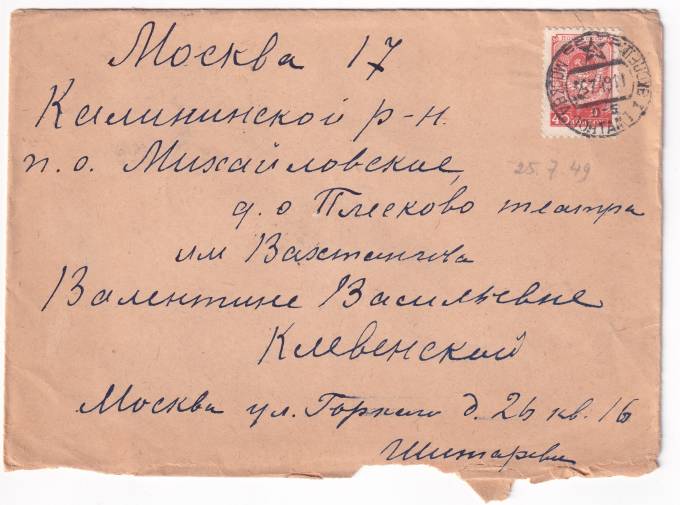 Москва 17
Калининской р-н.
п.о. Михайловское,
д.о Плесково театра
им Вахтангова
Валентине Васильевне
Клевенской
Москва ул. Горького д. 26 кв. 16
25. 7 49